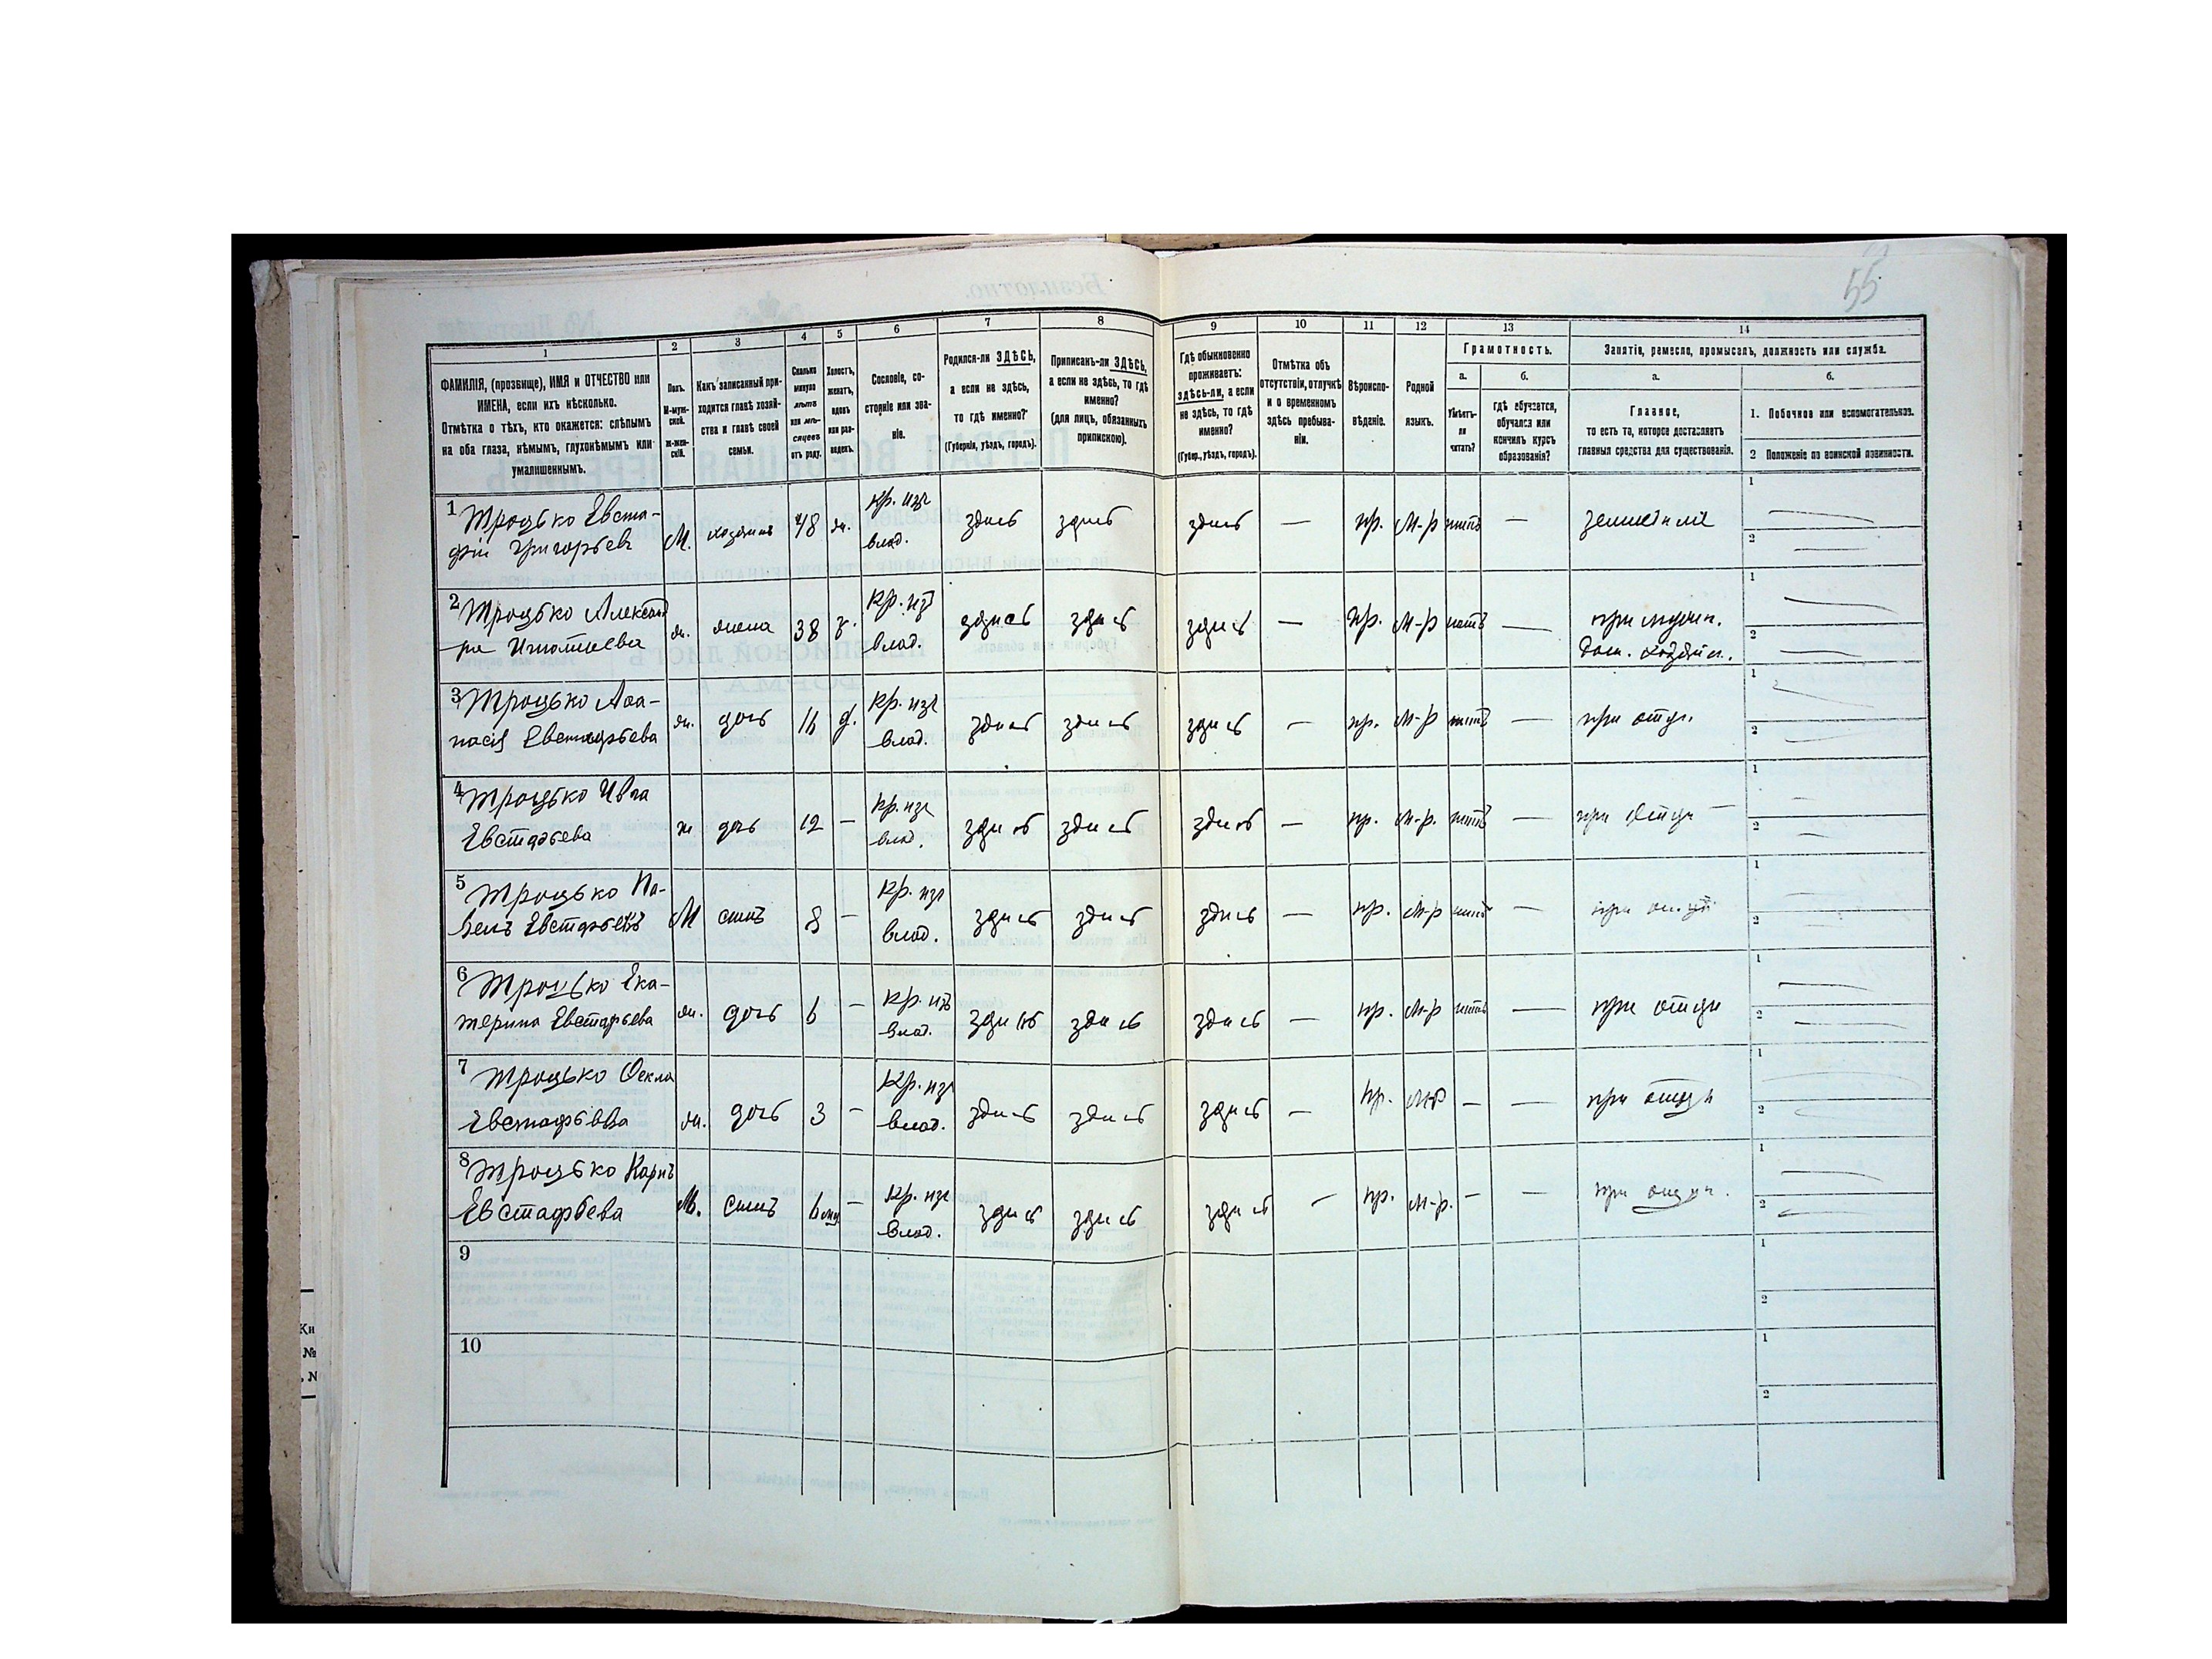 55
1 2 3 4 5 6 7 8 9 10 11 12 13 14
ФАМИЛІЯ, (прозвище), ИМЯ и ОТЧЕСТВО или
ИМЕНА, если ихъ нѣсколько.
Отмѣтка о тѣхъ, кто окажется: слѣпымъ
на оба глаза, нѣмымъ, глухонѣмымъ или
умалишеннымъ.
Полъ.
М-муж-
ской.
Ж-жен-
скій.
Какъ записанный при-
ходится главѣ хозяй-
ства и главѣ своей
семьи.
Сколько
минуло
лѣтъ
или мѣ-
сяцевъ
отъ роду.
Холостъ,
женатъ,
вдовъ
или раз-
веденъ.
Сословіе, со-
стояніе или зва-
ніе.
Родился-ли ЗДѢСЬ,
а если не здѣсь,
то гдѣ именно?
(Губернія, уѣздъ, городъ).
Приписанъ-ли ЗДѢСЬ,
а если не здѣсь, то гдѣ
именно?
(для лицъ, обязанныхъ
припискою).
Гдѣ обыкновенно
проживаетъ:
здѣсь-ли, а если
не здѣсь, то гдѣ
именно?
(Губер., уѣздъ, городъ).
Отмѣтка объ
отсутствіи, отлучкѣ
и о временномъ
здѣсь пребыва-
ніи.
Вѣроиспо-
вѣданіе.
Родной
языкъ.
Грамотность.
а. б.
Умѣетъ-
ли
читать?
гдѣ обучается,
обучался или
кончилъ курсъ
образованія?
Занятіе, ремесло, промыселъ, должность или служба.
а. б.
Главное,
то есть то, которое доставляетъ
главныя средства для существованія.
1. Побочное или вспомогательное.
2 Положеніе по воинской повинности.
1 Троцько Евста-
фій Григорьевъ М. хозяинъ 48 ж. Кр. изъ
влад. здись здись здись — пр. М-р нить — 1 2
2 Троцько Александ
ра Игнатьева ж. жена 38 з. Кр. изъ
влад. здись здись здись — пр. М-р нить — при
дом. хозяйн. 1 2
3 Троцько
Евстафьева ж. дочь 16 д. Кр. изъ
влад. здись здись здись — пр. М-р нить — при отци 1 2
4 Троцько Ивга
Евстафьева ж дочь 12 — Кр. изъ
влад. здись здись здись — пр. М-р. нить — при отци 1 2
5 Троцько Па-
велъ Евстафьевъ М синъ 8 — Кр. изъ
влад. здись здись здись — пр. М-р нить — при отци 1 2
6 Троцько Ека-
терина Евстафьева ж. дочь 6 — Кр. изъ
влад. здись здись здись — пр. М-р нить — при отци 1 2
7 Троцько Фекла
Евстафьева ж. дочь 3 — Кр. изъ
влад. здись здись здись — пр. М-р — — при отци 1 2
8 Троцько Карпъ
Евстафьева М. синъ 6 — Кр. изъ
влад. здись здись здись — пр. М-р. — — при отци. 1 2
9 1 2
10 1 2
Кн
№